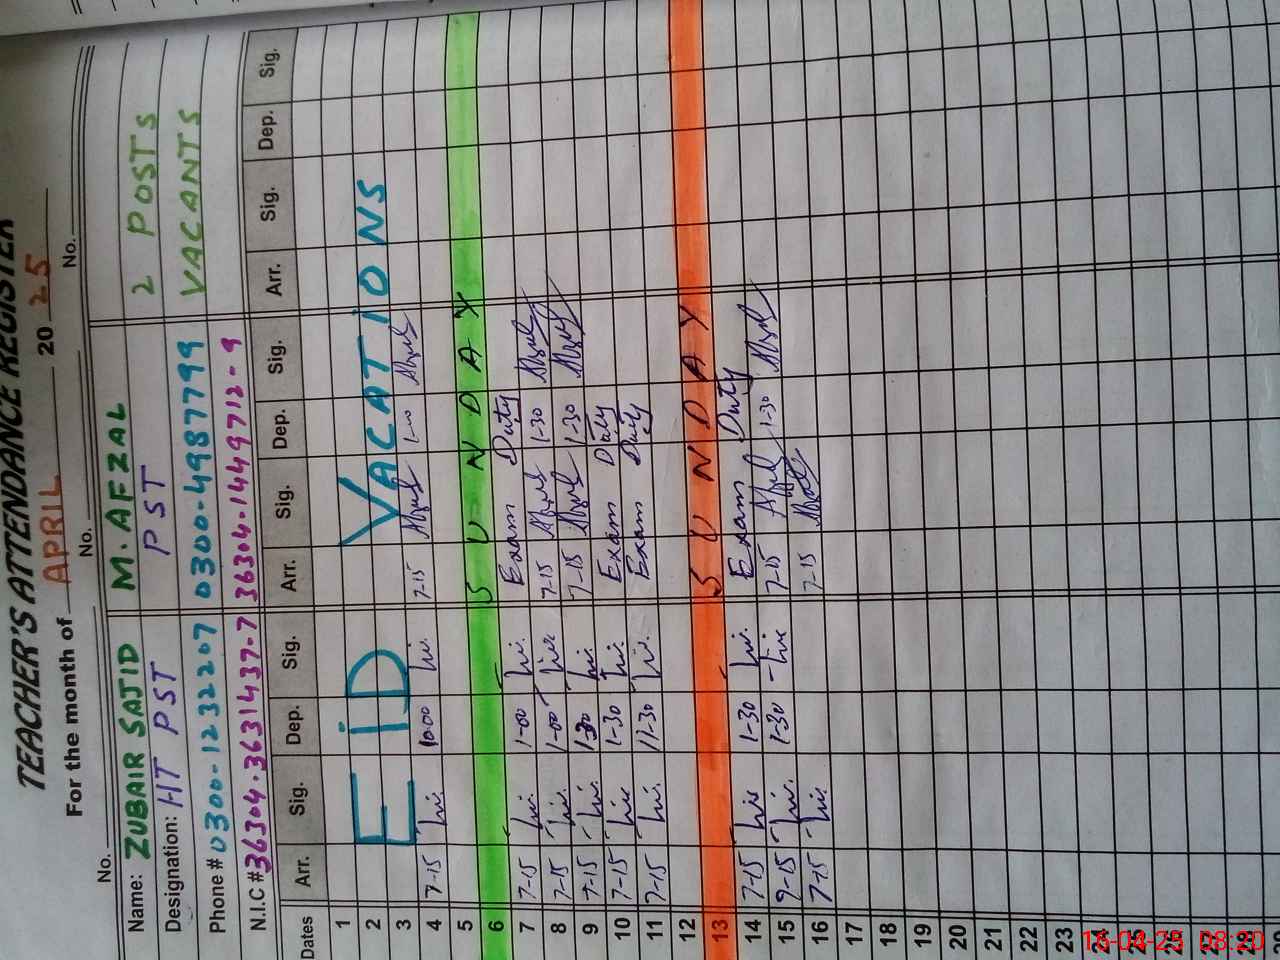 TEACHER'S ATTENDANCE REGISTER
For the month of APRIL 20 25
No. No. No.
Name: ZUBAIR SAJID M. AFZAL 2 POSTS
Designation: HT PST PST VACANTS
Phone # 0300-1232207 0300-4987799
N.I.C # 36304-3631437-7 36304-1449712-9
Dates Arr. Sig. Dep. Sig. Arr. Sig. Dep. Sig. Arr. Sig. Dep. Sig.
1
2 EID VACATIONS
3
4 7-15 10-00 7-15 1-00
5
6 SUNDAY
7 7-15 1-00 Exam Duty
8 7-15 1-00 7-15 1-30
9 7-15 1-30 7-15 1-30
10 7-15 1-30 Exam Duty
11 7-15 11-30 Exam Duty
12
13 SUNDAY
14 7-15 1-30 Exam Duty
15 7-15 1-30 7-15 1-30
16 7-15 7-15
17
18
19
20
21
22
23
24
25
26
27
28
29
16-04-25 08:20